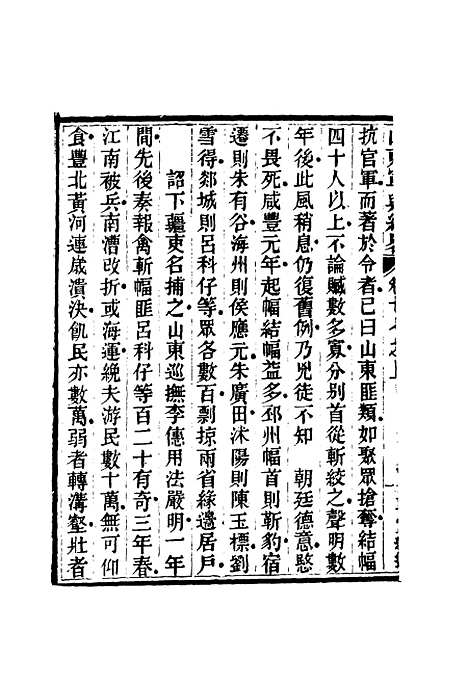 抗官軍而著於令者已曰山東匪類如聚眾搶奪結幅
四十人以上不論贓數多寡分別首從斬絞之聲明數
年後此風稍息仍復舊例乃兇徒不知　朝廷德意愍
不畏死咸豐元年起幅結幅益多邳州幅首則靳豹宿
遷則朱有谷海州則侯應元朱廣田沭陽則陳玉標劉
雪得郯城則呂科仔等眾各數百剽掠兩省緣邊居戶
詔下疆吏名捕之山東巡撫李僡用法嚴明一年
間先後奏報禽斬幅匪呂科仔等百二十有奇三年春
江南被兵南漕改折或海運綄夫游民數十萬無可仰
食豐北黃河連歲潰決飢民亦數萬弱者轉溝壑壯者